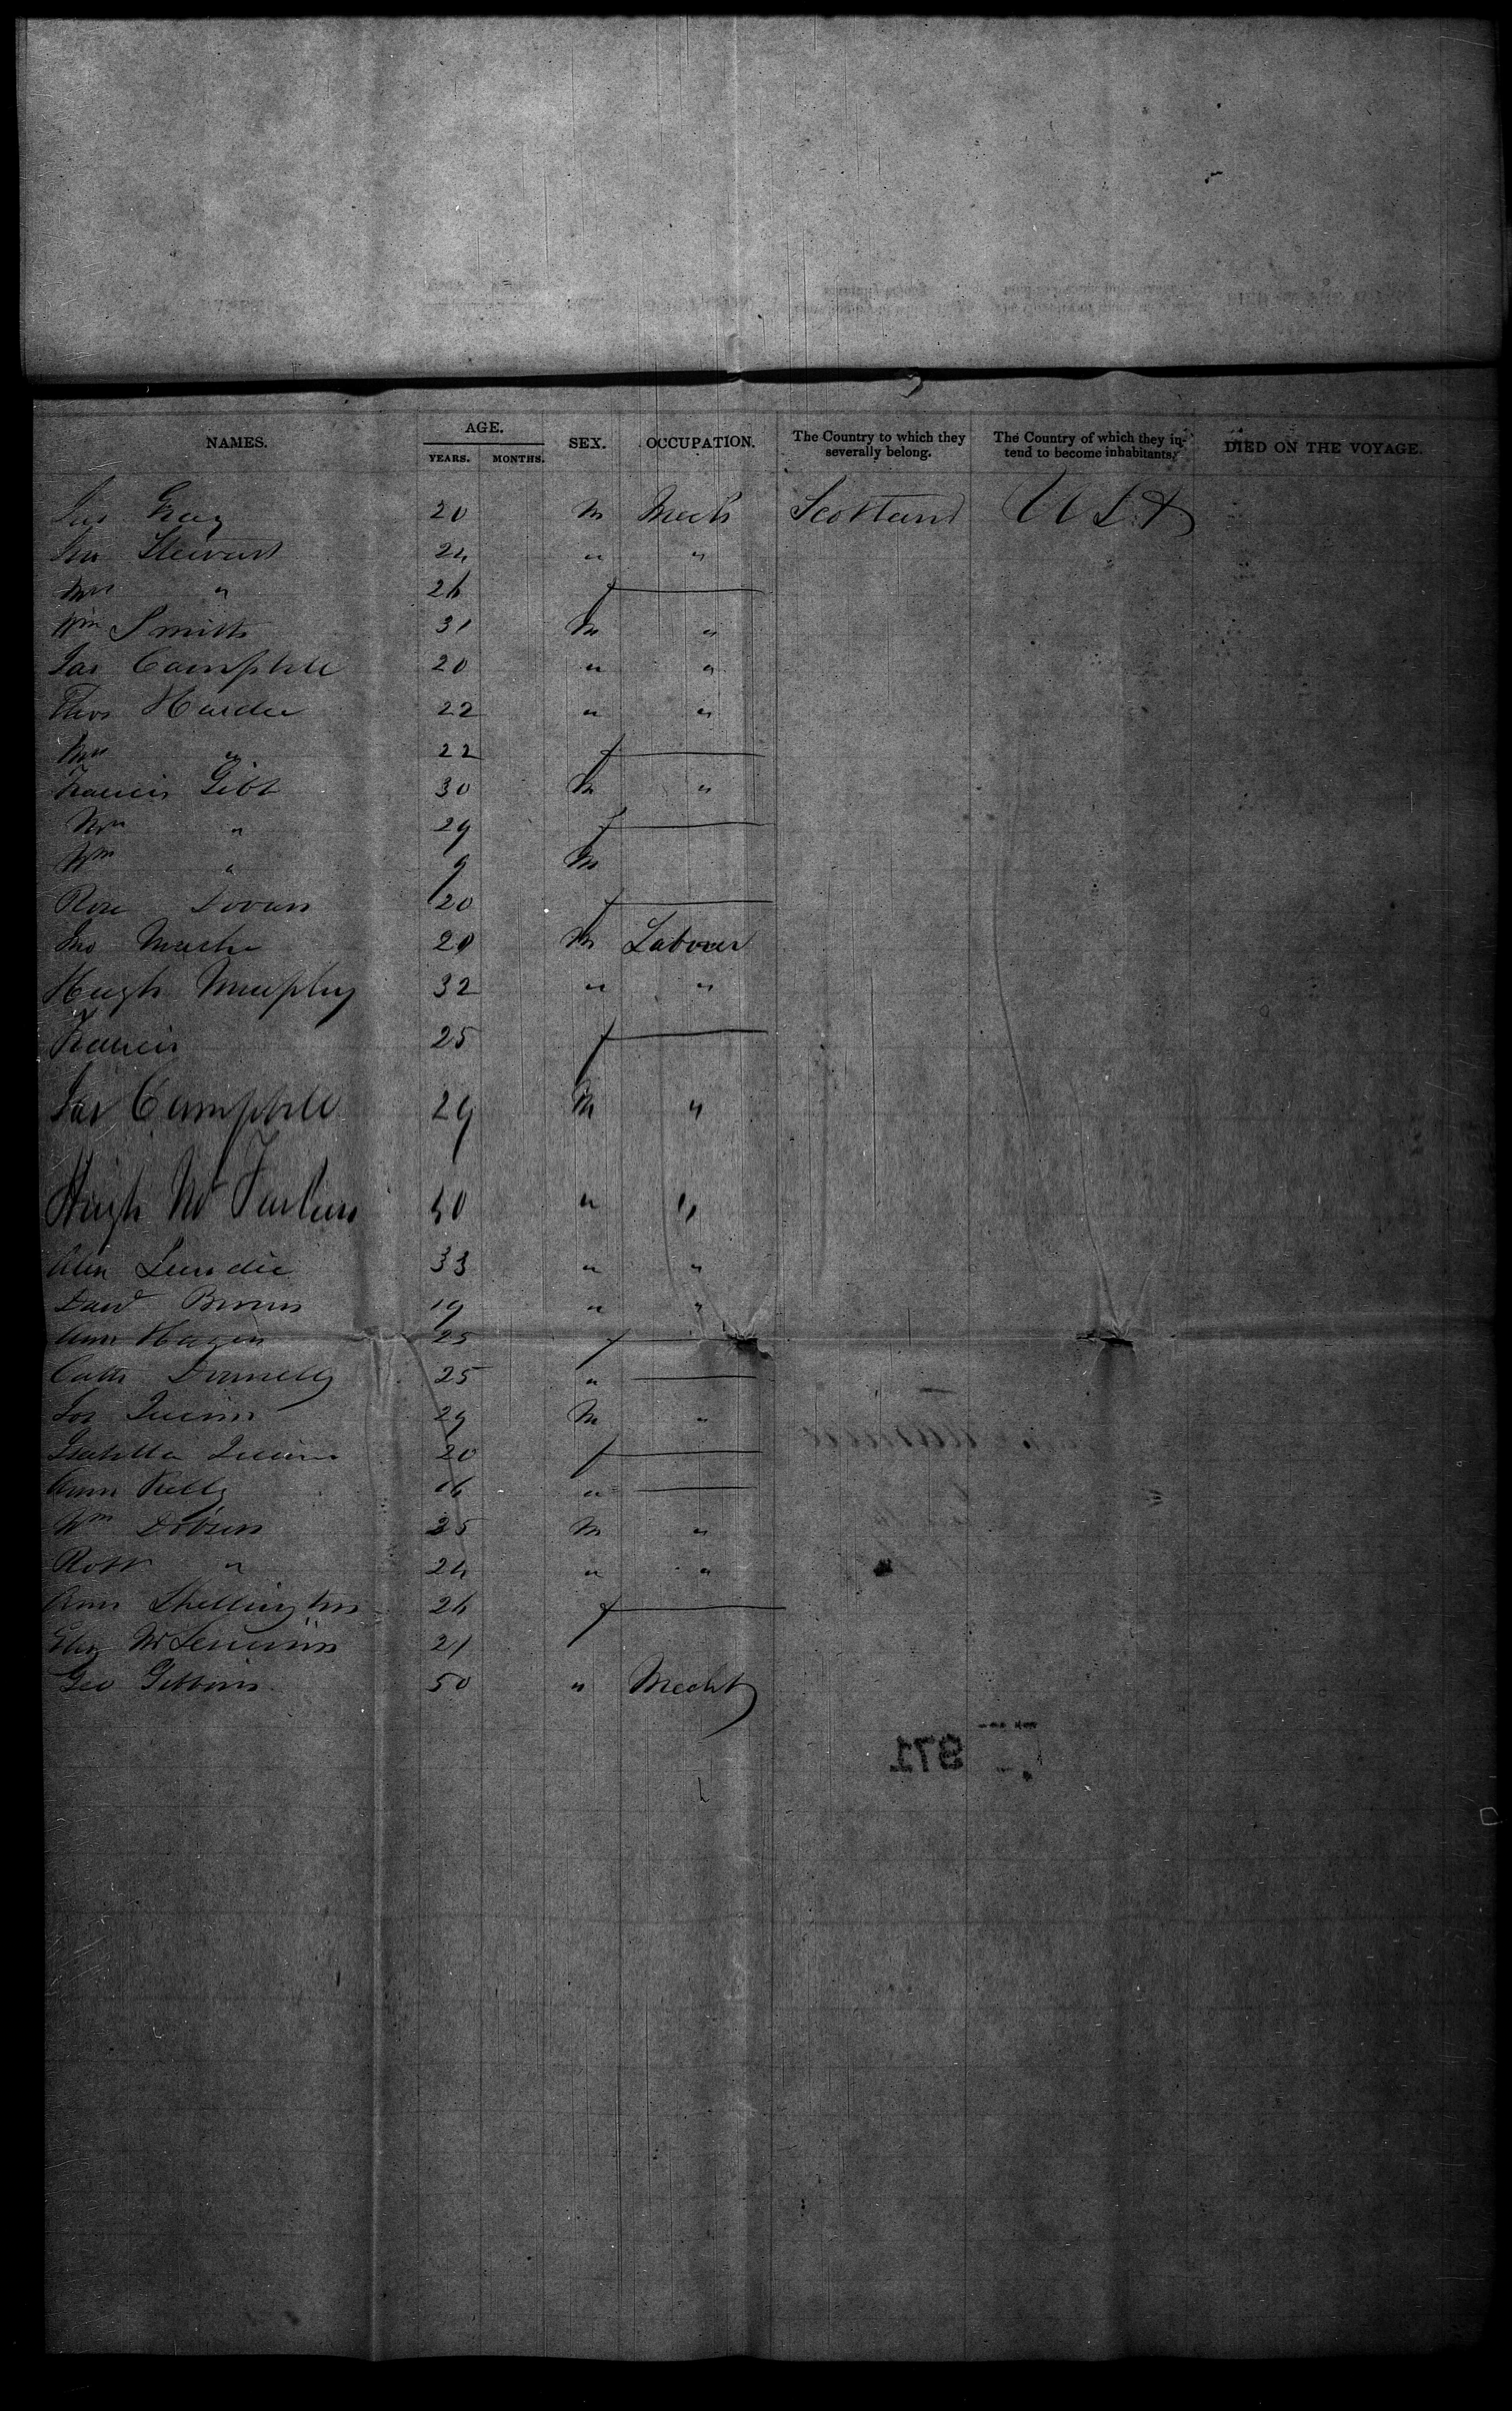 NAMES. AGE. YEARS. MONTHS. SEX. OCCUPATION. The Country to which they severally belong. The Country of which they intend to become inhabitants. DIED ON THE VOYAGE.
Gray 20 M Mech Scotland USA
Stewart 24 " "
Mrs " 26 f
Wm Smith 31 M "
Jas Campbell 20 " "
Thos Hardie 22 " "
Mrs " 22 f
Francis Gibb 30 M "
Mrs " 29 f
Wm " 9 M
Rose 20 f
Jno 20 M Labourer
Hugh Murphy 32 " "
Francis 25 f
Jas Campbell 29 M "
Hugh Mc " "
Alex Lundie 33 " "
David 19 " "
Ann Hagen 25 f
Cath Donnelly 25 "
Jos Quinn 29 M "
Isabella Quinn 20 f
Ann Kelly 16 "
Wm Dobson 25 M "
Robt " 24 " "
Ann Shellington 26 f
Eliz 21
Geo Gibbons 50 " Mecht
971